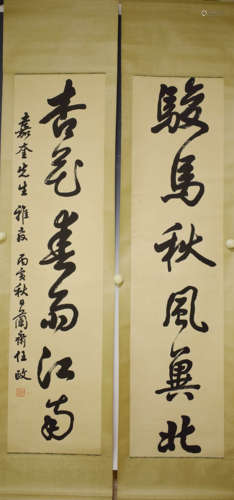 駿馬秋風冀北
杏花春雨江南
嘉奎先生雅教 丙寅秋日蘭齋任政